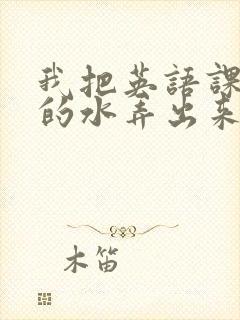 我把英語課
的水弄出来
木笛